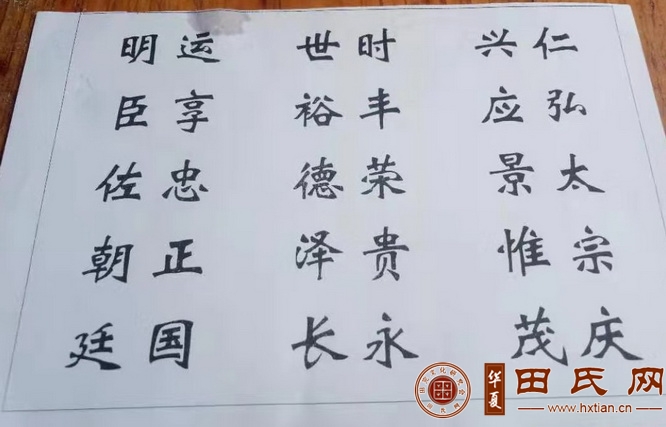 仁弘太宗庆
兴应景惟茂
时丰荣贵永
世裕德泽长
运享忠正国
明臣佐朝廷
华夏
田氏网
www.hxtian.cn